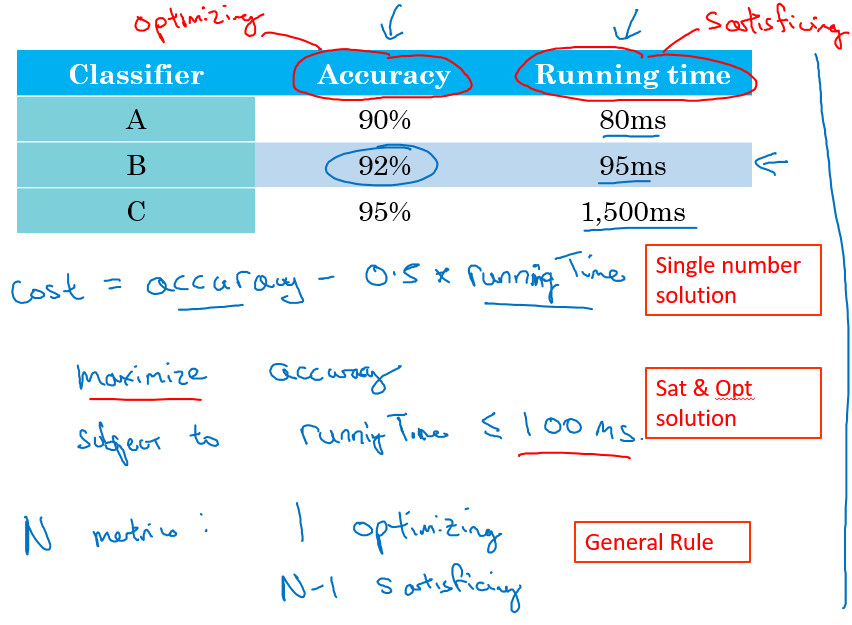 optimizing satisficing
Classifier Accuracy Running time
A 90% 80ms
B 92% 95ms
C 95% 1,500ms
cost = accuracy - 0.5 x running Time
Single number
solution
maximize accuracy
subject to running Time ≤ 100 ms.
Sat & Opt
solution
N metrics: 1 optimizing
N-1 satisficing
General Rule